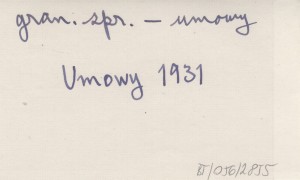 gran. spr. — umowy
Umowy 1931
II/056/2855